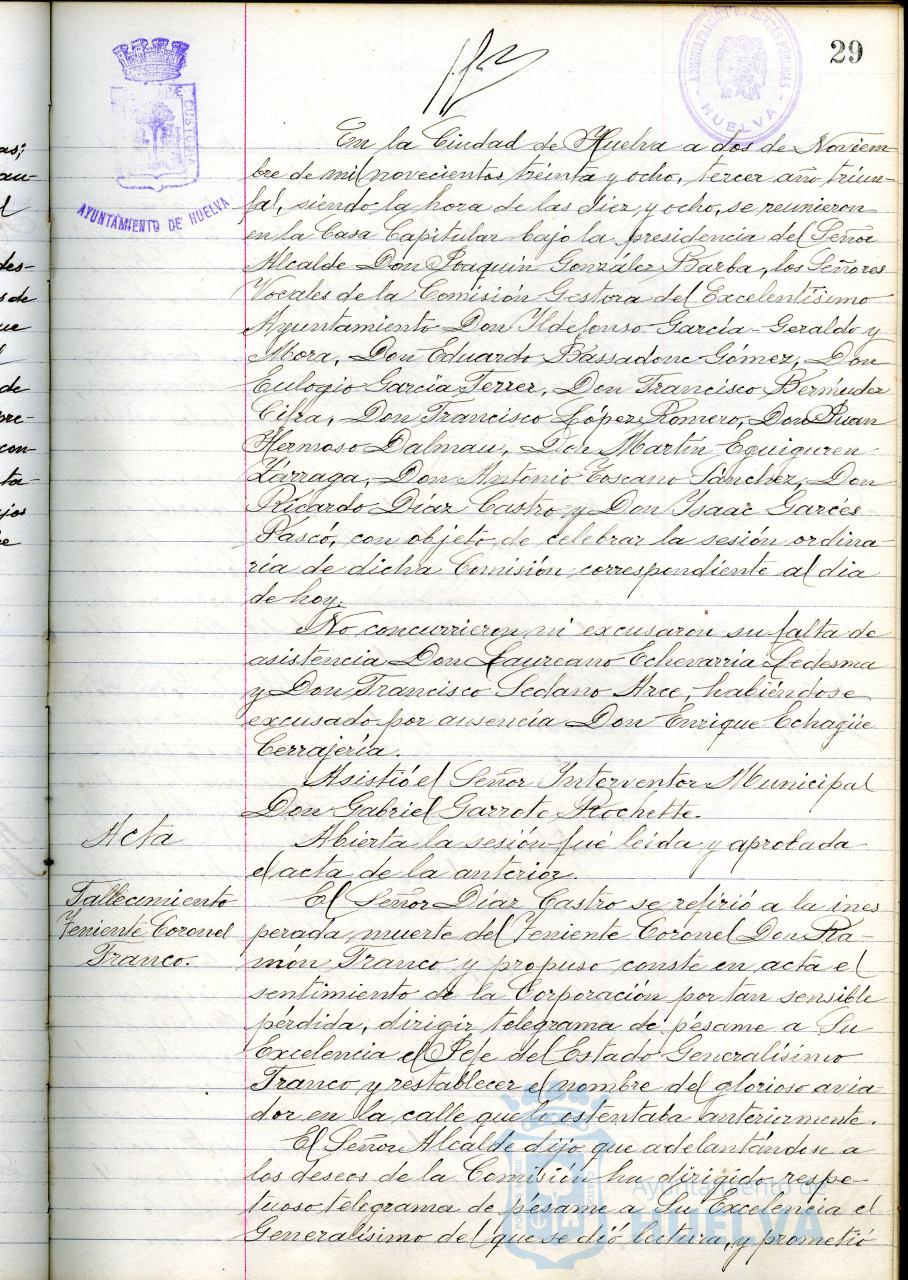 29
AYUNTAMIENTO DE HUELVA
ADMINISTRACIÓN DE RENTAS PÚBLICAS
HUELVA
En la Ciudad de Huelva a dos de Noviem-
bre de mil novecientos treinta y ocho, tercer año triun-
fal, siendo la hora de las diez y ocho, se reunieron
en la Casa Capitular bajo la presidencia del Señor
Alcalde Don Joaquín González Barba, los Señores
Vocales de la Comisión Gestora del Excelentísimo
Ayuntamiento Don Ildefonso García-Geraldo y
Mora, Don Eduardo Bassadone Gómez, Don
Eulogio García Ferrer, Don Francisco Bermúdez
Cilra, Don Francisco López Romero, Don Juan
Hermoso Dalmau, Don Martín Eguiguren
Zárraga, Don Antonio Toscano Sánchez, Don
Ricardo Díaz Castro y Don Isaac Garcés
Pascó, con objeto de celebrar la sesión ordina-
ria de dicha Comisión, correspondiente al dia
de hoy.
No concurrieron ni excusaron su falta de
asistencia Don Laureano Echevarria Ledesma
y Don Francisco Sedano Arce, habiéndose
excusado por ausencia Don Enrique Echagüe
Cerrajería.
Asistió el Señor Interventor Municipal
Don Gabriel Garrote Rochette.
Acta
Abierta la sesión fué leída y aprobada
el acta de la anterior.
Fallecimiento
Teniente Coronel
Franco.
El Señor Díaz Castro se refirió a la ines
perada muerte del Teniente Coronel Don Ra-
món Franco y propuso conste en acta el
sentimiento de la Corporación por tan sensible
pérdida, dirigir telegrama de pésame a Su
Excelencia el Jefe del Estado Generalísimo
Franco y restablecer el nombre del glorioso avia-
dor en la calle que lo ostentaba anteriormente.
El Señor Alcalde dijo que adelantándose a
los deseos de la Comisión ha dirigido respe-
tuoso telegrama de pésame a Su Excelencia el
Generalísimo del que se dió lectura, y prometió
Ayuntamiento de
HUELVA